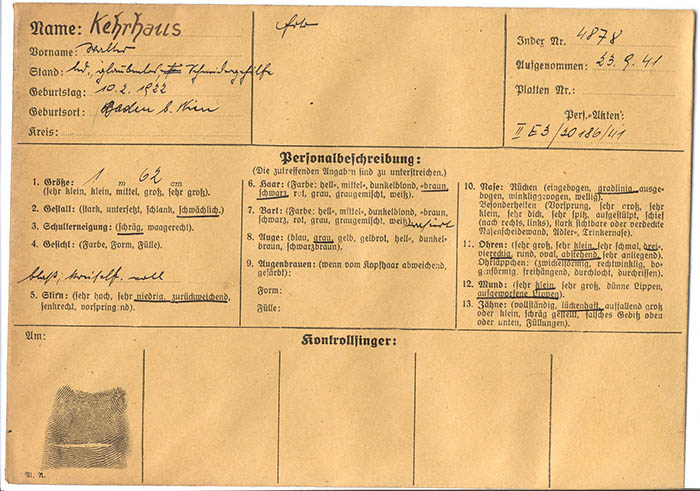 Name: Kehrhaus
Vorname: Walter
Stand: led., glaubenlos, Schneidergehilfe
Geburtstag: 10.2.1922
Geburtsort: Baden b. Wien
Kreis:
Index Nr. 4878
Aufgenommen: 23.9.41
Platten Nr.:
Pers.-Akten:
II E3/20186/41
Personalbeschreibung:
(Die zutreffenden Angaben sind zu unterstreichen).
1. Größe: 1 m 62 cm
(sehr klein, klein, mittel, groß, sehr groß).
2. Gestalt: (stark, untersetzt, schlank, schwächlich.)
3. Schulterneigung: (schräg, waagerecht).
4. Gesicht: (Farbe, Form, Fülle).
voll
5. Stirn: (sehr hoch, sehr niedrig, zurückweichend,
senkrecht, vorspringend).
6. Haar: (Farbe: hell-, mittel-, dunkelblond, -braun,
schwarz, rot, grau, graugemischt, weiß).
7. Bart: (Farbe: hell-, mittel-, dunkelblond, -braun,
schwarz, rot, grau, graugemischt, weiß). rasiert
8. Auge: (blau, grau, gelb, gelbrot, hell-, dunkel-
braun, schwarzbraun).
9. Augenbrauen: (wenn vom Kopfhaar abweichend,
gefärbt):
Form:
Fülle:
10. Nase: Rücken (eingebogen, gradlinig, ausge-
bogen, winkliggebogen, wellig).
Besonderheiten (Vorsprung, sehr groß, sehr
klein, sehr dick, sehr spitz, aufgestülpt, schief
(nach rechts, links), stark sichtbare oder verdeckte
Nasenscheidewand, Adler-, Trinkernase).
11. Ohren: (sehr groß, sehr klein, sehr schmal, drei-,
viereckig, rund, oval, abstehend, sehr anliegend).
Ohrläppchen: (zwickelförmig, rechtwinklig, bo-
genförmig, freihängend, durchlocht, durchrissen).
12. Mund: (sehr klein, sehr groß, dünne Lippen,
aufgeworfene Lippen).
13. Zähne: (vollständig, lückenhaft, auffallend groß
oder klein, schräg gestellt, falsches Gebiß oben
oder unten, Füllungen).
Am:
Kontrollfinger: